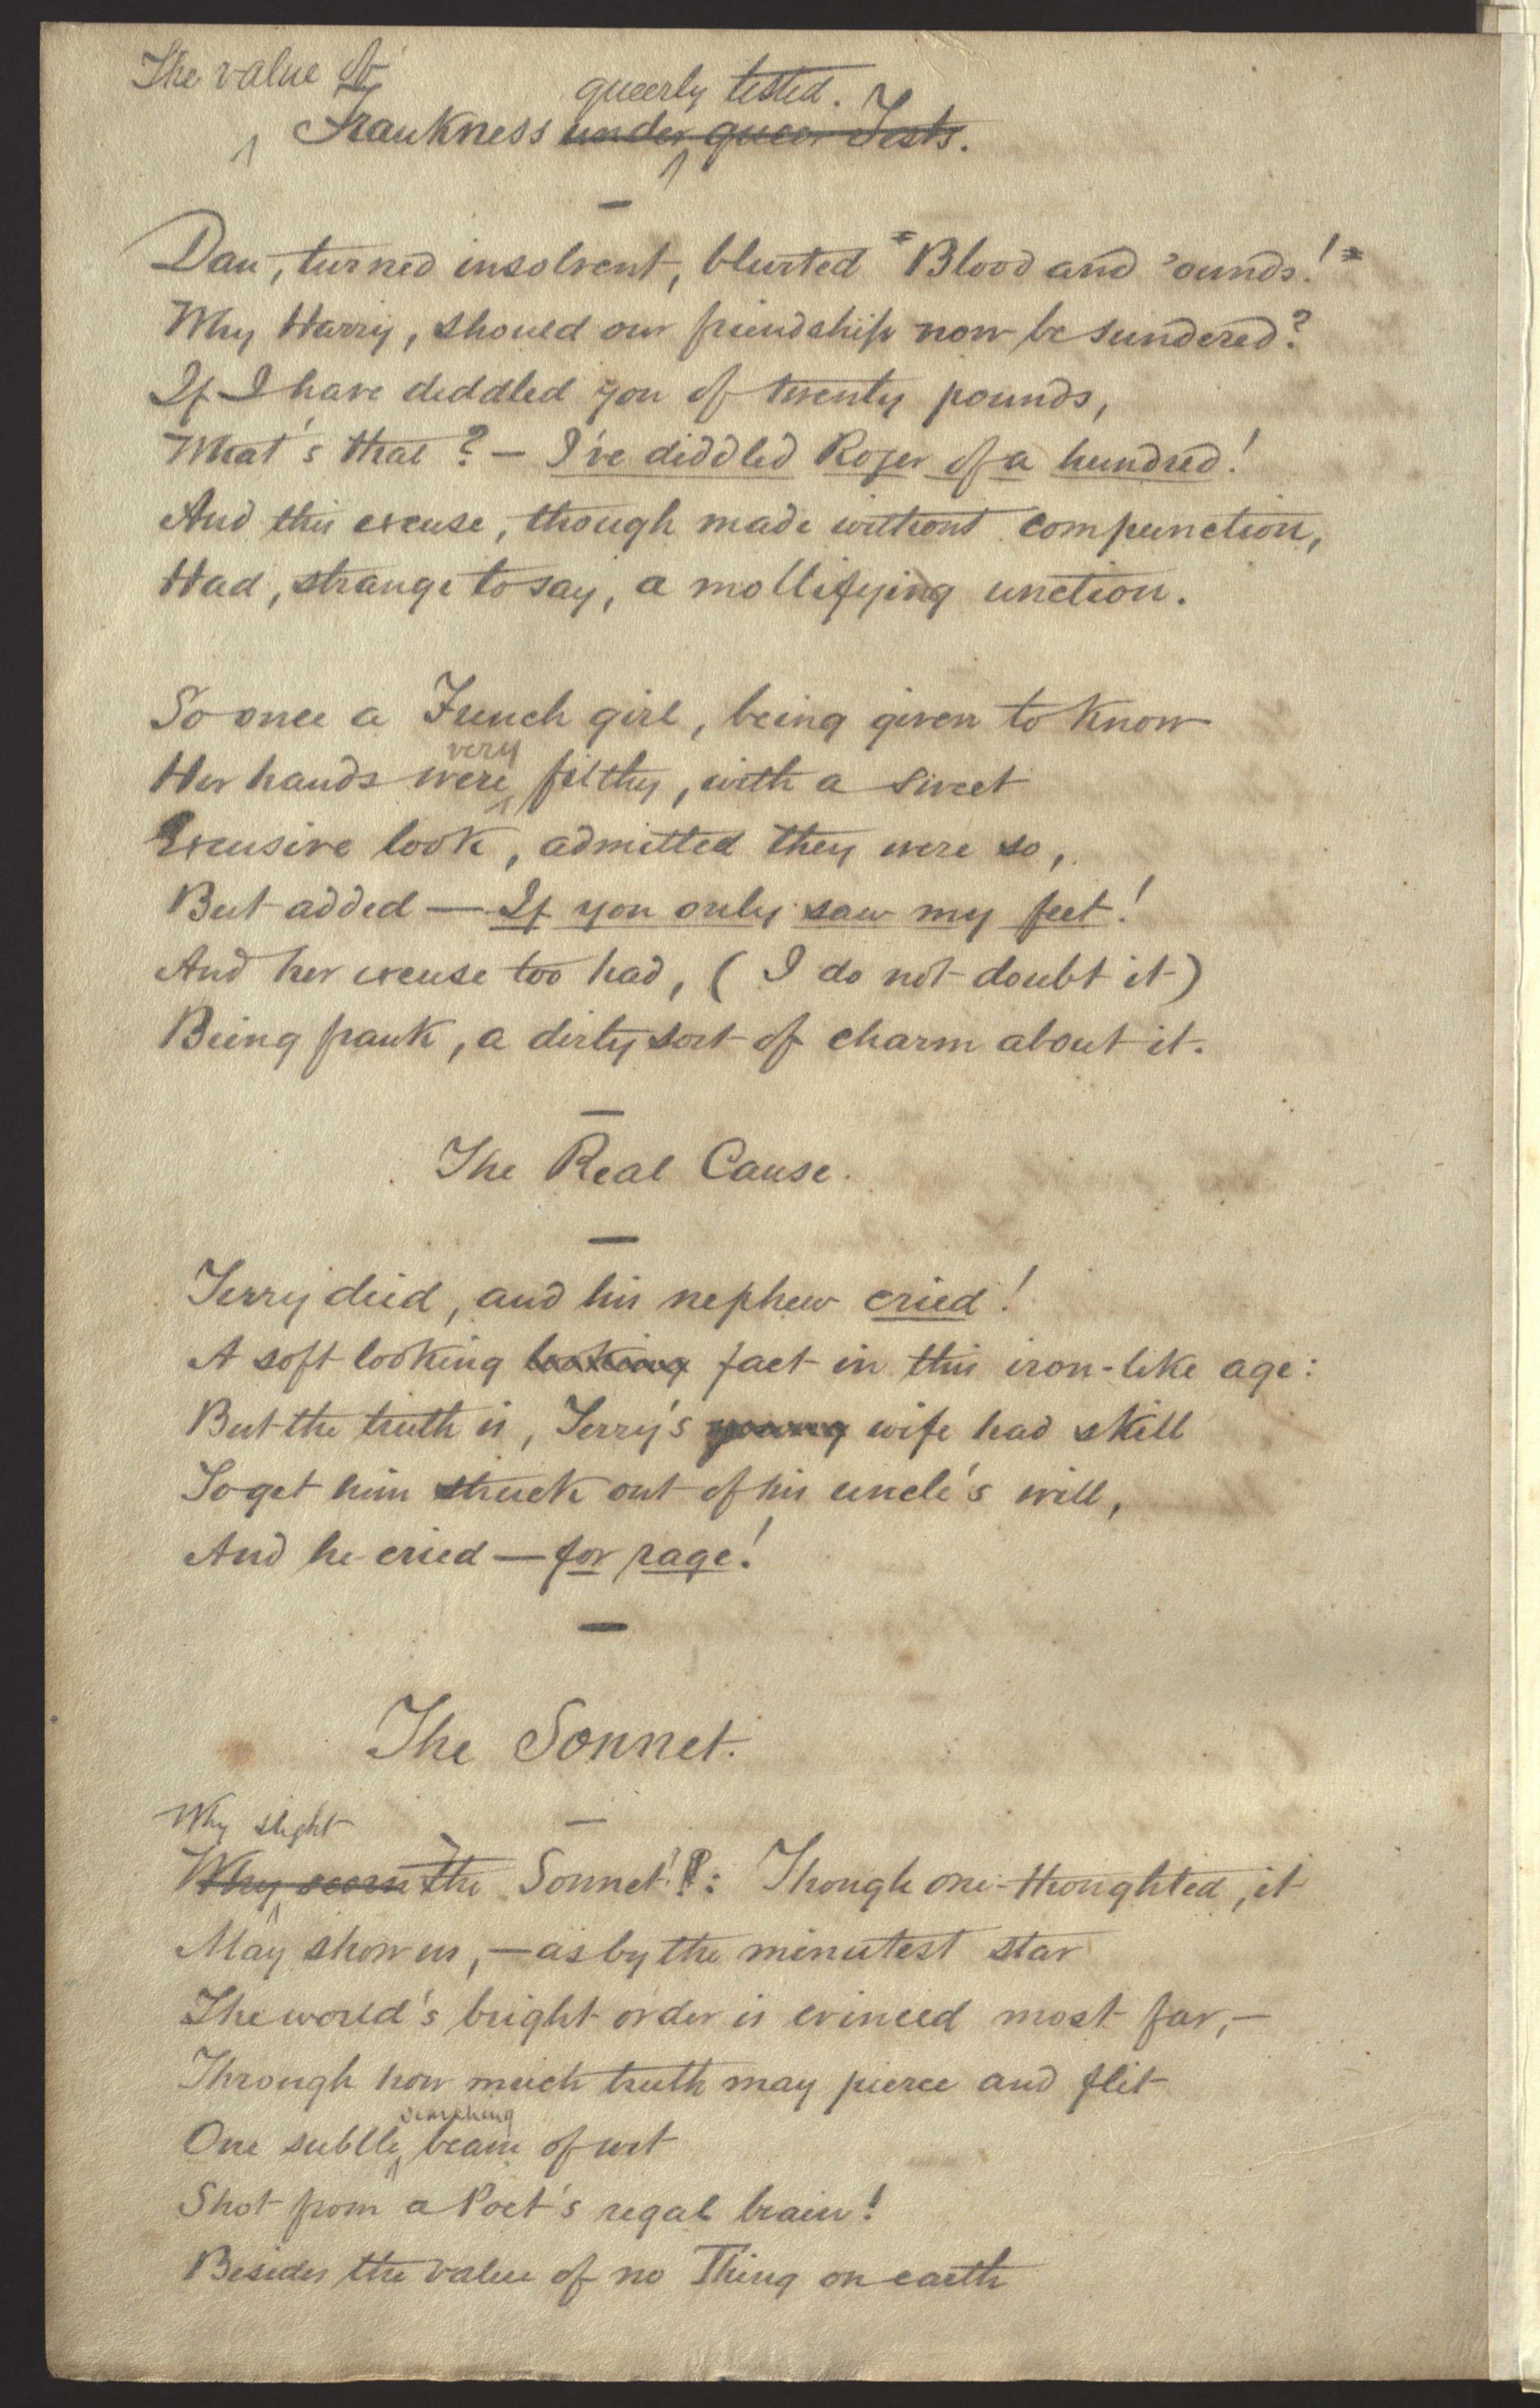 The value of
queerly tested.
Frankness under queer Tests.
Dan, turned insolvent, blurted "Blood and 'ounds!"
Why Harry, should our friendship now be sundered?
If I have diddled you of twenty pounds,
What's that? — I've diddled Roger of a hundred!
And this excuse, though made without compunction,
Had, strange to say, a mollifying unction.
So once a French girl, being given to know
very
Her hands were filthy, with a sweet
Excusive look, admitted they were so,
But added — If you only saw my feet!
And her excuse too had, (I do not doubt it)
Being frank, a dirty sort of charm about it.
The Real Cause.
Jerry died, and his nephew cried!
A soft looking looking fact in this iron-like age:
But the truth is, Jerry's young wife had skill
To get him struck out of his uncle's will,
And he cried — for rage!
The Sonnet.
Why slight
Why scorn the Sonnet?: Though one-thoughted, it
May show us, — as by the minutest star
The world's bright order is evinced most far, —
Through how much truth may pierce and flit
searching
One subtle beam of wit
Shot from a Poet's regal brain!
Besides the value of no Thing on earth